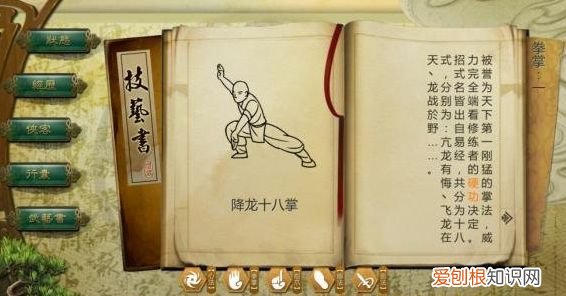 狀態
經歷
俠客
行囊
武藝書
技藝書
降龙十八掌
拳掌：一
被誉为天下第一刚猛的掌法，威
力完全端看修练者的硬功决定。
招式名皆出自易经，共分为十八
式，分别为：亢龙有悔、飞龙在
天、龙战於野……。
爱刨根知识网